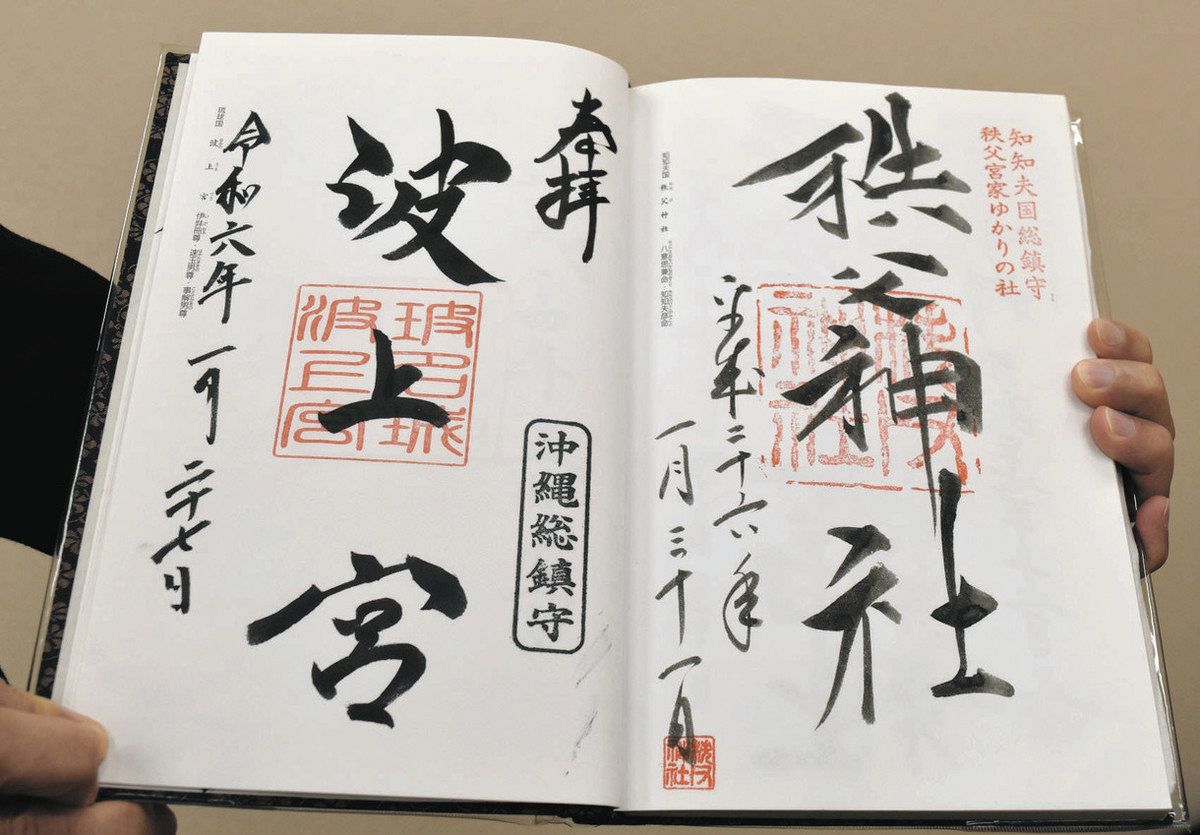 知知夫国総鎮守
秩父宮家ゆかりの社
秩父神社
秩父
神社
平成二十六年
一月三十一日
秩父
神社
知知夫国 秩父神社 八意思兼命・知知夫彦命
奉拝
沖縄総鎮守
波上宮
波上宮
令和六年 一月 二十七日
琉球国 波上宮 伊弉冊尊・速玉男尊・事解男尊